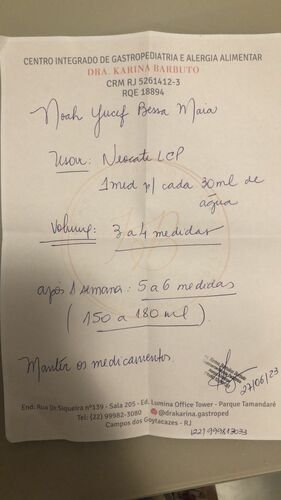 CENTRO INTEGRADO DE GASTROPEDIATRIA E ALERGIA ALIMENTAR
DRA. KARINA BARBUTO
CRM RJ 5261412-3
RQE 18894
Noah Yucef Bessa Maia
Usar: Neocate LCP
1 med p/ cada 30ml de
água
Volume: 3 a 4 medidas
após 1 semana: 5 a 6 medidas
(150 a 180 ml).
Manter os medicamentos
27/06/23
End: Rua Dr. Siqueira nº139 - Sala 205 - Ed. Lumina Office Tower - Parque Tamandaré
Tel: (22) 99982-3080 @drakarina.gastroped
Campos dos Goytacazes - RJ